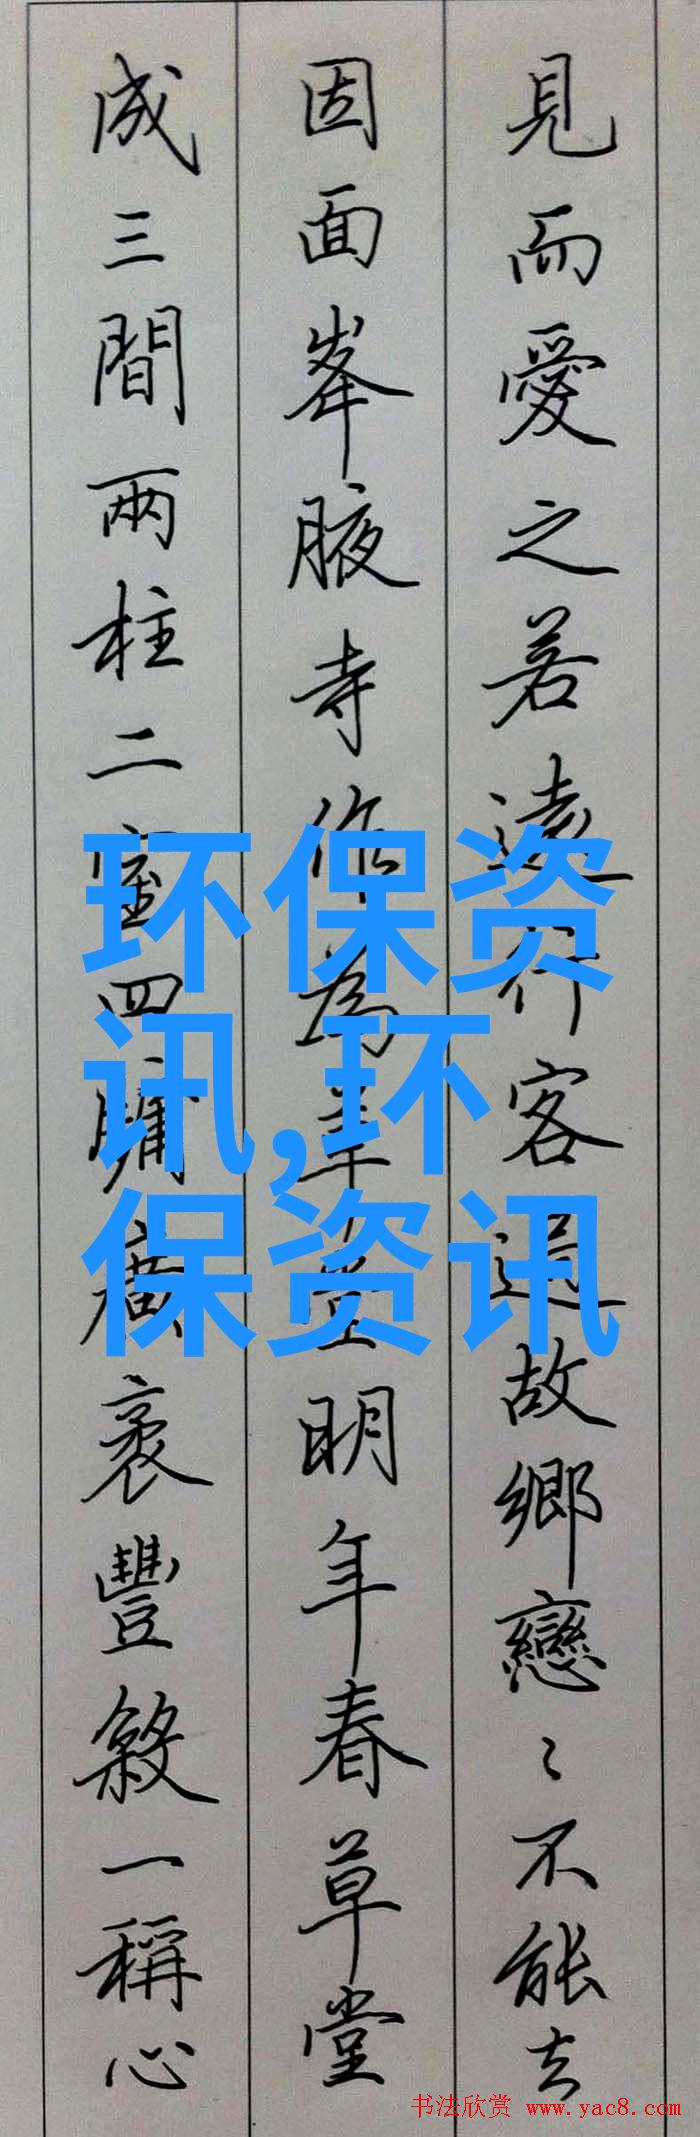 見而愛之若遠行客過故鄉戀〻不能去
因面峯腋寺作為草堂明年春草堂
成三間兩柱二室四牖廣袤豐殺一稱心
环保资
讯,环
保资讯
书法欣赏 www.yac8.com